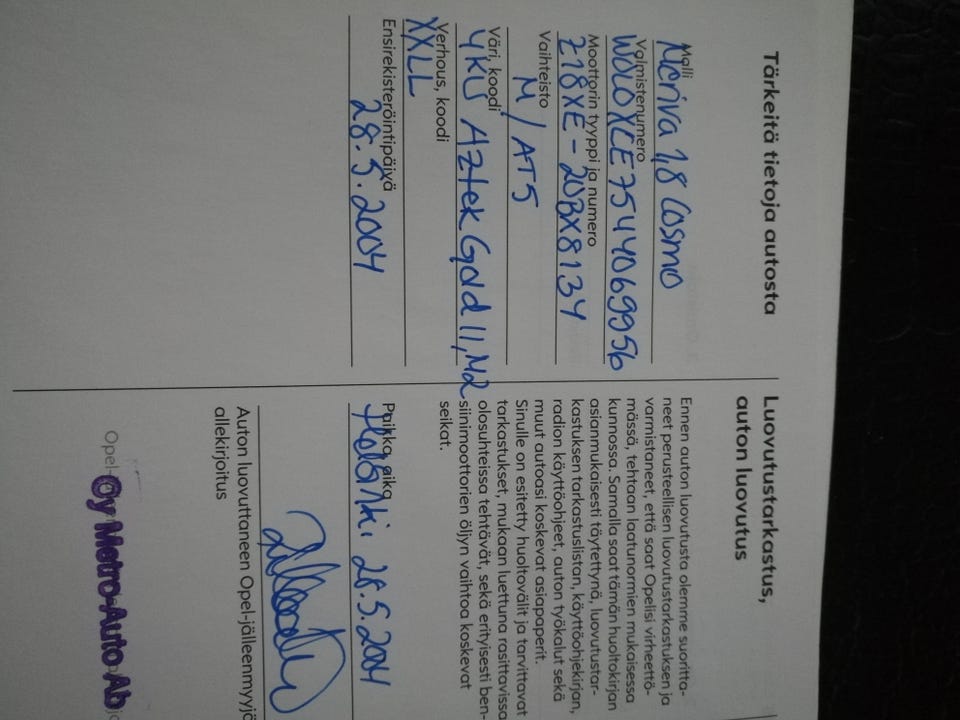 Tärkeitä tietoja autosta
Malli
Meriva 1,8 Cosmo
Valmistenumero
W0L0XCE7544069956
Moottorin tyyppi ja numero
Z18XE - 20BX8134
Vaihteisto
M / AT5
Väri, koodi
4KU Aztek Gold II, M2
Verhous, koodi
XXLL
Ensirekisteröintipäivä
28.5.2004
Luovutustarkastus,
auton luovutus
Ennen auton luovutusta olemme suoritta-
neet perusteellisen luovutustarkastuksen ja
varmistaneet, että saat Opelisi virheettö-
mässä, tehtaan laatunormien mukaisessa
kunnossa. Samalla saat tämän huoltokirjan
asianmukaisesti täytettynä, luovutustar-
kastuksen tarkastuslistan, käyttöohjekirjan,
radion käyttöohjeet, auton työkalut sekä
muut autoasi koskevat asiapaperit.
Sinulle on esitetty huoltovälit ja tarvittavat
tarkastukset, mukaan luettuna rasittavissa
olosuhteissa tehtävät, sekä erityisesti ben-
siinimoottorien öljyn vaihtoa koskevat
seikat.
Paikka, aika
Helsinki 28.5.2004
Auton luovuttaneen Opel-jälleenmyyjä
allekirjoitus
Opel-
Oy Metro-Auto Ab